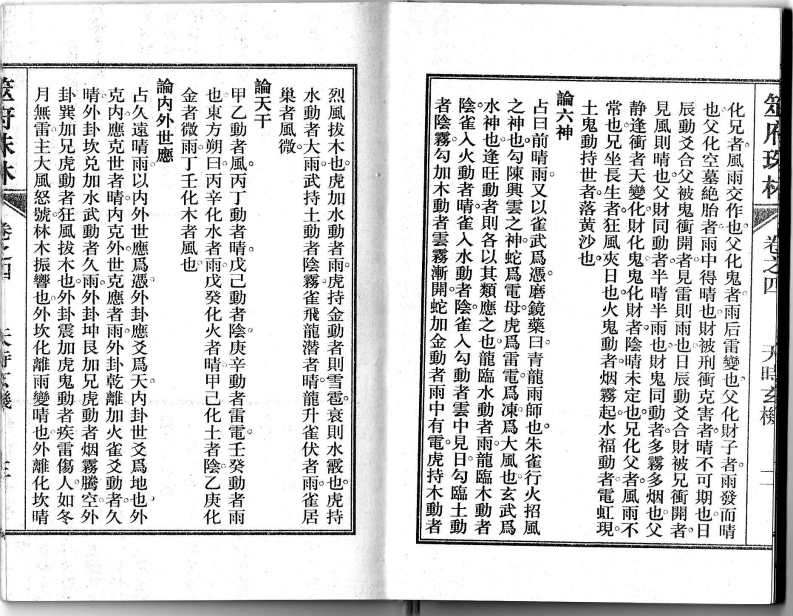 筮府珠林
卷之四
天時玄機
二
化兄者風雨交作也父化鬼者雨后雷變也父化財子者雨發而晴
也父化空墓絶胎者雨中得晴也財被刑衝克害者晴不可期也日
辰動爻合父被鬼衝開者見雷則雨也日辰動爻合財被兄衝開者
見風則晴也父財同動者半晴半雨也財鬼同動者多霧多烟也父
静逢衝者天變化財化鬼鬼化財者陰晴未定也兄化父者風雨不
常也兄坐長生者狂風夾日也火鬼動者烟霧起水福動者電虹現
土鬼動持世者落黃沙也
論六神
占曰前晴雨又以雀武爲憑磨鏡藥曰青龍雨師也朱雀行火招風
之神也勾陳興雲之神蛇爲電母虎爲雷電爲凍爲大風也玄武爲
水神也逢旺動者則各以其類應之也龍臨水動者雨龍臨木動者
陰雀入火動者晴雀入水動者陰雀入勾動者雲中見日勾臨土動
者陰霧勾加木動者雲霧漸開蛇加金動者雨中有電虎持木動者
烈風拔木也虎加水動者雨虎持金動者則雪雹衰則水霰也虎持
水動者大雨武持土動者陰霧雀飛龍潛者晴龍升雀伏者雨雀居
巢者風微
論天干
甲乙動者風丙丁動者晴戊己動者陰庚辛動者雷電壬癸動者雨
也東方朔曰丙辛化水者雨戊癸化火者晴甲己化土者陰乙庚化
金者微雨丁壬化木者風也
論内外世應
占久遠晴雨以内外世應爲憑外卦應爻爲天内卦世爻爲地也外
克内應克世者晴内克外世克應者雨外卦乾離加火雀爻動者久
晴外卦坎兑加水武動者久雨外卦坤艮加兄虎動者烟霧騰空外
卦巽加兄虎動者狂風拔木也外卦震加虎鬼動者疾雷傷人如冬
月無雷主大風怒號林木振響也外坎化離雨變晴也外離化坎晴
筮府珠林
卷之四
天時玄機
三